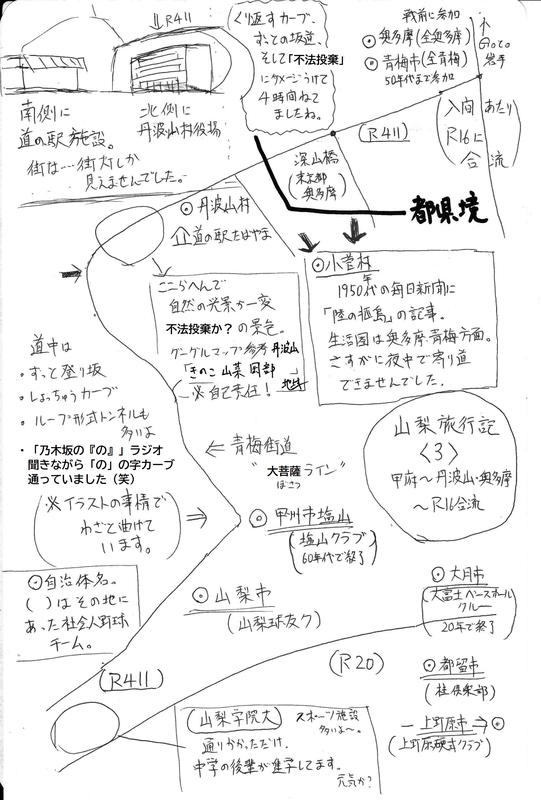 R411
南側に
道の駅施設。
街は…街灯しか
見えませんでした。
北側に
丹波山村役場
くり返すカーブ、
ずっとの坂道、
そして「不法投棄」
にダメージうけて
4時間ねて
ましたね。
戦前に参加
◎奥多摩(全奥多摩)
◎青梅市(全青梅)
50年代まで参加
↑
Goto
岩手
(R411)
入間あたり
R16に
合流
深山橋
(東京都
奥多摩)
都県境
◎丹波山村
道の駅たばやま
◎小菅村
1950年代の毎日新聞に
「陸の孤島」の記事。
生活圏は奥多摩、青梅方面。
さすがに夜中で寄り道
できませんでした。
ここらへんで
自然の光景が一変
不法投棄か?の景色。
グーグルマップ参考 丹波山
「きのこ 山菜 図部」地域
※自己責任!
道中は
・ずっと登り坂
・しょっちゅうカーブ
・ループ形式トンネルも
多いよ
・「乃木坂の『の』」ラジオ
聞きながら「の」の字カーブ
通っていました(笑)
(※イラストの事情で
わざと曲げて
います。)
⇐青梅街道
"大菩薩ライン"
ぼさつ
山梨旅行記
〈3〉
甲府~丹波山・奥多摩
~R16合流
⇒◎甲州市塩山
(塩山クラブ
60年代で終了)
◎自治体名。
( )はその地に
あった社会人野球
チーム。
◎山梨市
(山梨球友ク)
◎大月市
(大富士ベースボール
クルー
20年で終了)
(R411)
(R20)
◎都留市
(桂倶楽部)
―上野原市⇒◎
(上野原硬式クラブ)
(山梨学院大) スポーツ施設
多いよ~。
通りかかっただけ。
中学の後輩が進学してます。
元気か?